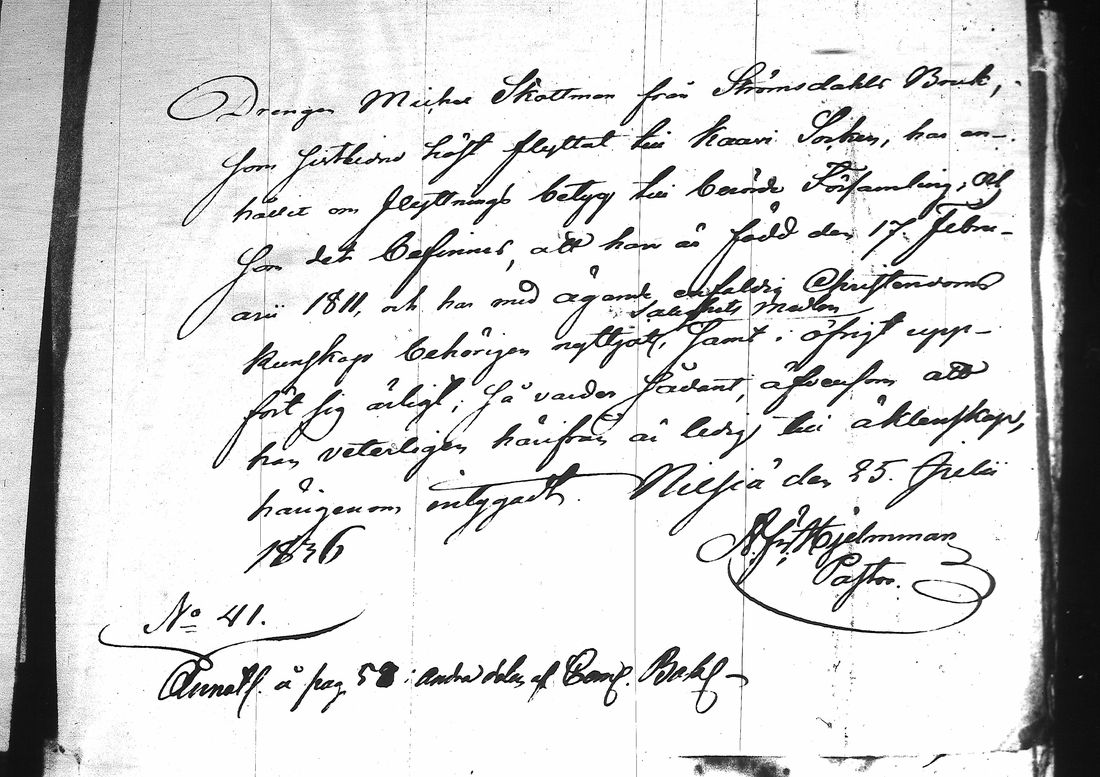 Drengen Michel Skottman från Strömsdahls Bruk,
som sistledne höst flyttat till Kaavi Socken, har an-
hållit om flyttnings betyg till berörde Församling; och
som det befinnes, att han är född den 17. Febru-
arii 1811, och har med ägande enfaldig Christendoms
salighets medlen
kunskap behörigen nyttjat, samt i öfrigt upp-
fört sig ärligt; så varder sådant, äfvensom att
han veterligen härifrån är ledig till äktenskap,
härigenom intygadt. Nilsiä den 25. Julii
1836
Hjelmman
Pastor.
No 41.
Annotd. å pag 58 i andra delen af Com. Boken